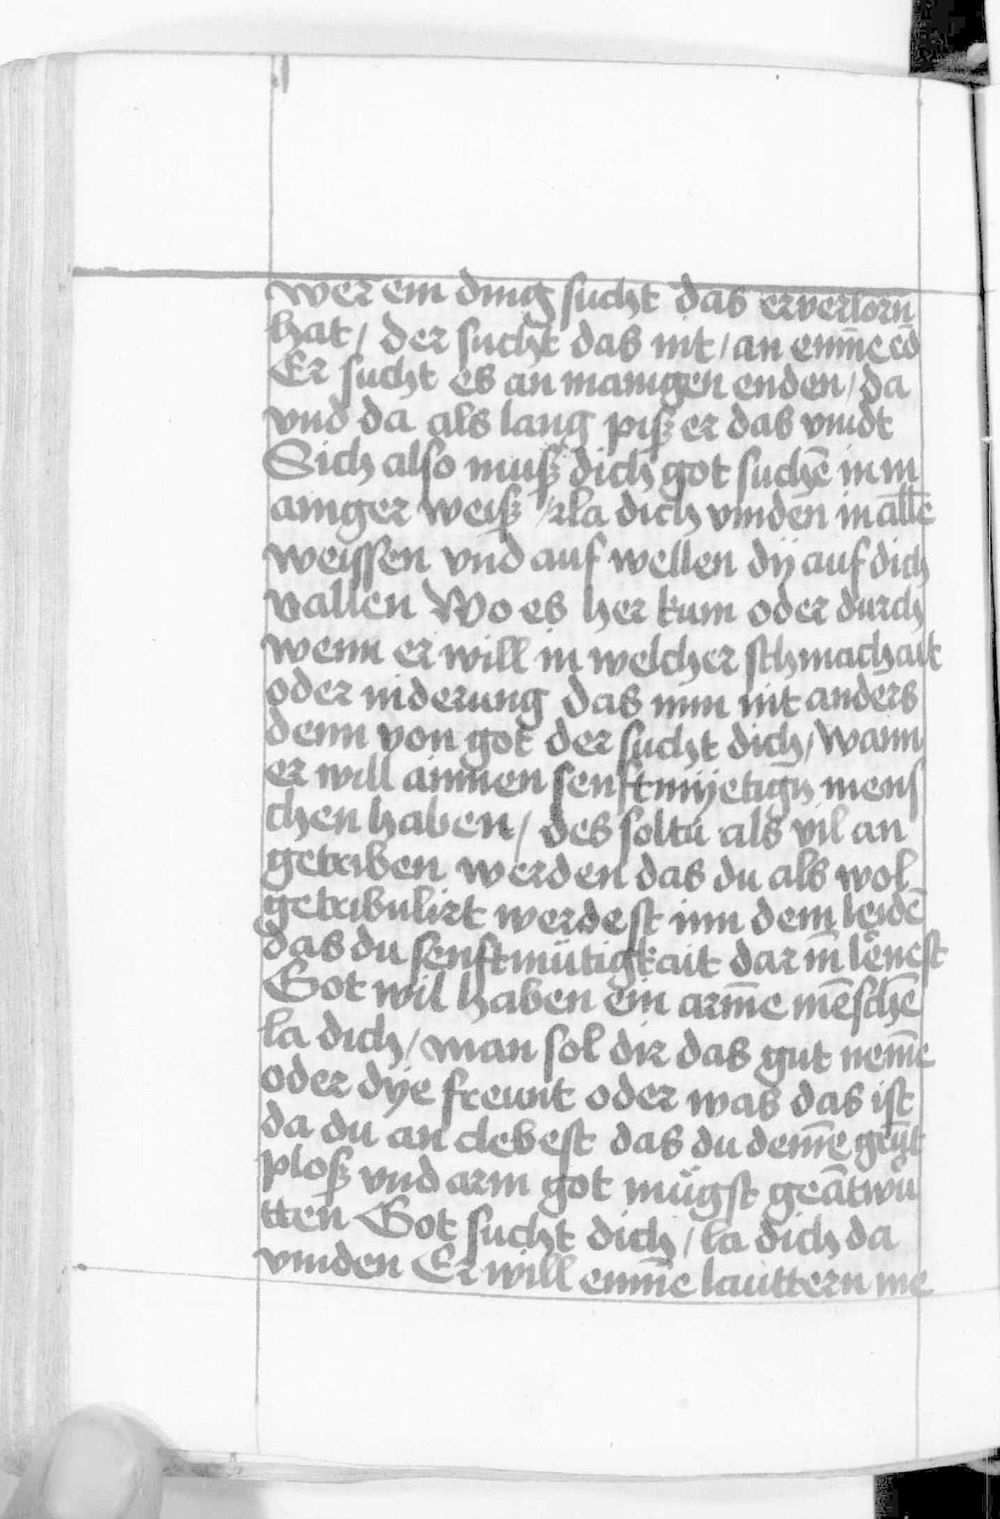 wer ein ding sucht das er verlorn̄
hat / der sucht das nit / an einn̄e ēd
Er sucht es an manigen enden / da
vnd da als lang piß er das vindt
Sich also muß dich got suchē in m
aniger weiß / la dich vinden in allē
weissen vnd auf wellen dÿ auf dich
vallen Wo es her kum oder durch
wenn er will in welcher schmachait
oder niderung das nim nit anders
denn von got der sucht dich / wann
er will ainnen senftmÿetign̄ mens
chen haben / des soltu als vil an
getriben werden das du als wol
getribulirt werdest inn dem leidē
das du senftmütigkait dar in̄ lēnest
Got wil haben ein arm̄e mēschē
la dich / man sol dir das gut nem̄e
oder dÿe freunt oder was das ist
da du an clebest das du dem̄e gēüt
ploß vnd arm got mügst geātwü
tten Got sucht dich / la dich da
vinden Er will einn̄e lauttern me